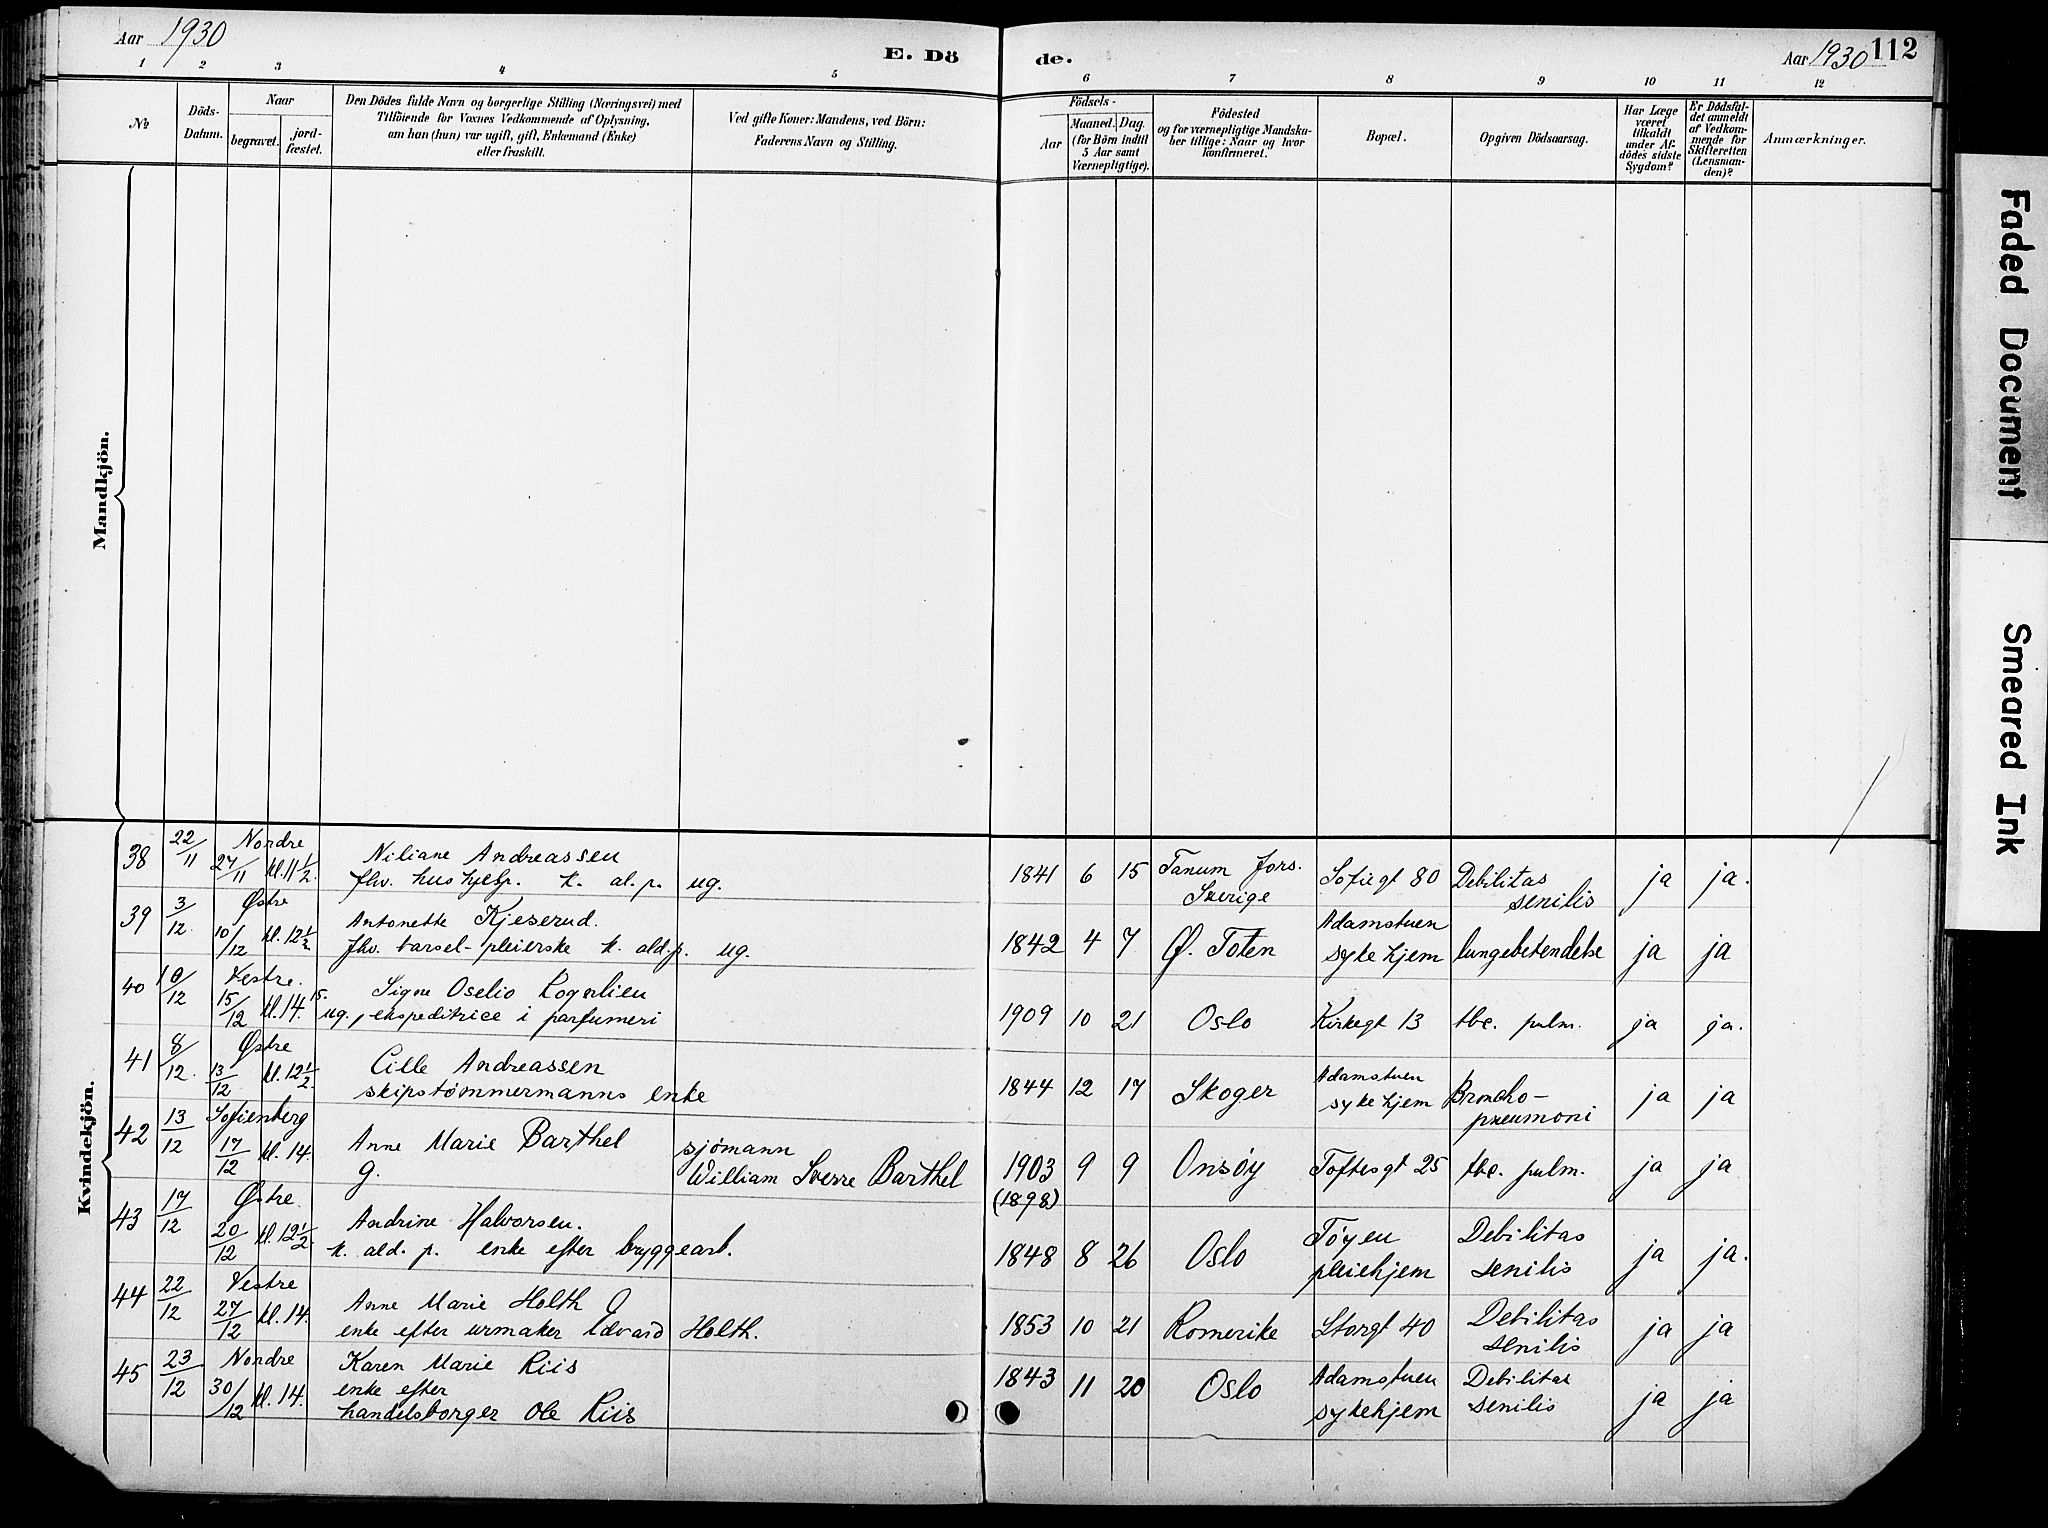 Aar 1930
E. Dö
de.
Aar 1930 112
1 2 3 4 5 6 7 8 9 10 11 12
№
Döds-
Datum.
Naar
begravet.
jord-
fæstet.
Den Dödes fulde Navn og borgerlige Stilling (Næringsvei) med
Tilföiende for Voxnes Vedkommende af Oplysning,
om han (hun) var ugift, gift, Enkemand (Enke)
eller fraskilt.
Ved gifte Koner: Mandens, ved Börn:
Faderens Navn og Stilling.
Födsels-
Aar
Maaned. Dag.
(for Börn indtil
5 Aar samt
Værnepligtige).
Födested
og for værnepligtige Mandska-
ber tillige: Naar og hvor
konfirmeret.
Bopæl.
Opgiven Dödsaarsag.
Har Læge
været
tilkaldt
under Af-
dödes sidste
Sygdom?
Er Dödsfal-
det anmeldt
af Vedkom-
mende for
Skifteretten
(Lensman-
den)?
Anmærkninger.
Mandkjön.
Kvindekjön.
38 22/11 Nordre 27/11 kl. 11 1/2
Niliane Andreassen
fhv. hushjelp. k. al. p. ug.
1841 6 15 Tanum fors. Sverige Sofiegt 80 Debilitas senilis ja ja.
39 3/12 Østre 10/12 kl. 12 1/2
Antonette Kjeserud.
fhv. barsel-pleierske k. ald. p. ug.
1842 4 7 Ø. Toten Adamstuen sykehjem lungebetendelse ja ja
40 10/12 Vestre. 15/12 kl. 14.15.
Signe Oselio Rognlien
ug., ekspeditrice i parfumeri
1909 10 21 Oslo Kirkegt 13 tbc. pulm. ja ja.
41 8/12 Østre 13/12 kl. 12 1/2
Cille Andreassen
skipstømmermanns enke
1844 12 17 Skoger Adamstuen sykehjem Broncho-pneumoni ja ja
42 13/12 Sofienberg 17/12 kl. 14.
Anne Marie Barthel
g.
sjømann
William Sverre Barthel
1903 9 9 Onsøy Toftesgt 25 tbc. pulm. ja ja
(1898)
43 17/12 Østre. 20/12 kl. 12 1/2
Andrine Halvorsen.
k. ald. p. enke efter bryggearb.
1848 8 26 Oslo Tøyen pleiehjem Debilitas senilis ja ja.
44 22/12 Vestre 27/12 kl. 14.
Anne Marie Holth
enke efter urmaker Edvard Holth.
1853 10 21 Romerike Storgt 40 Debilitas senilis ja ja
45 23/12 Nordre 30/12 kl. 14.
Karen Marie Riis
enke efter
handelsborger Ole Riis
1843 11 20 Oslo Adamstuen sykehjem Debilitas senilis ja ja
Faded Document
Smeared Ink